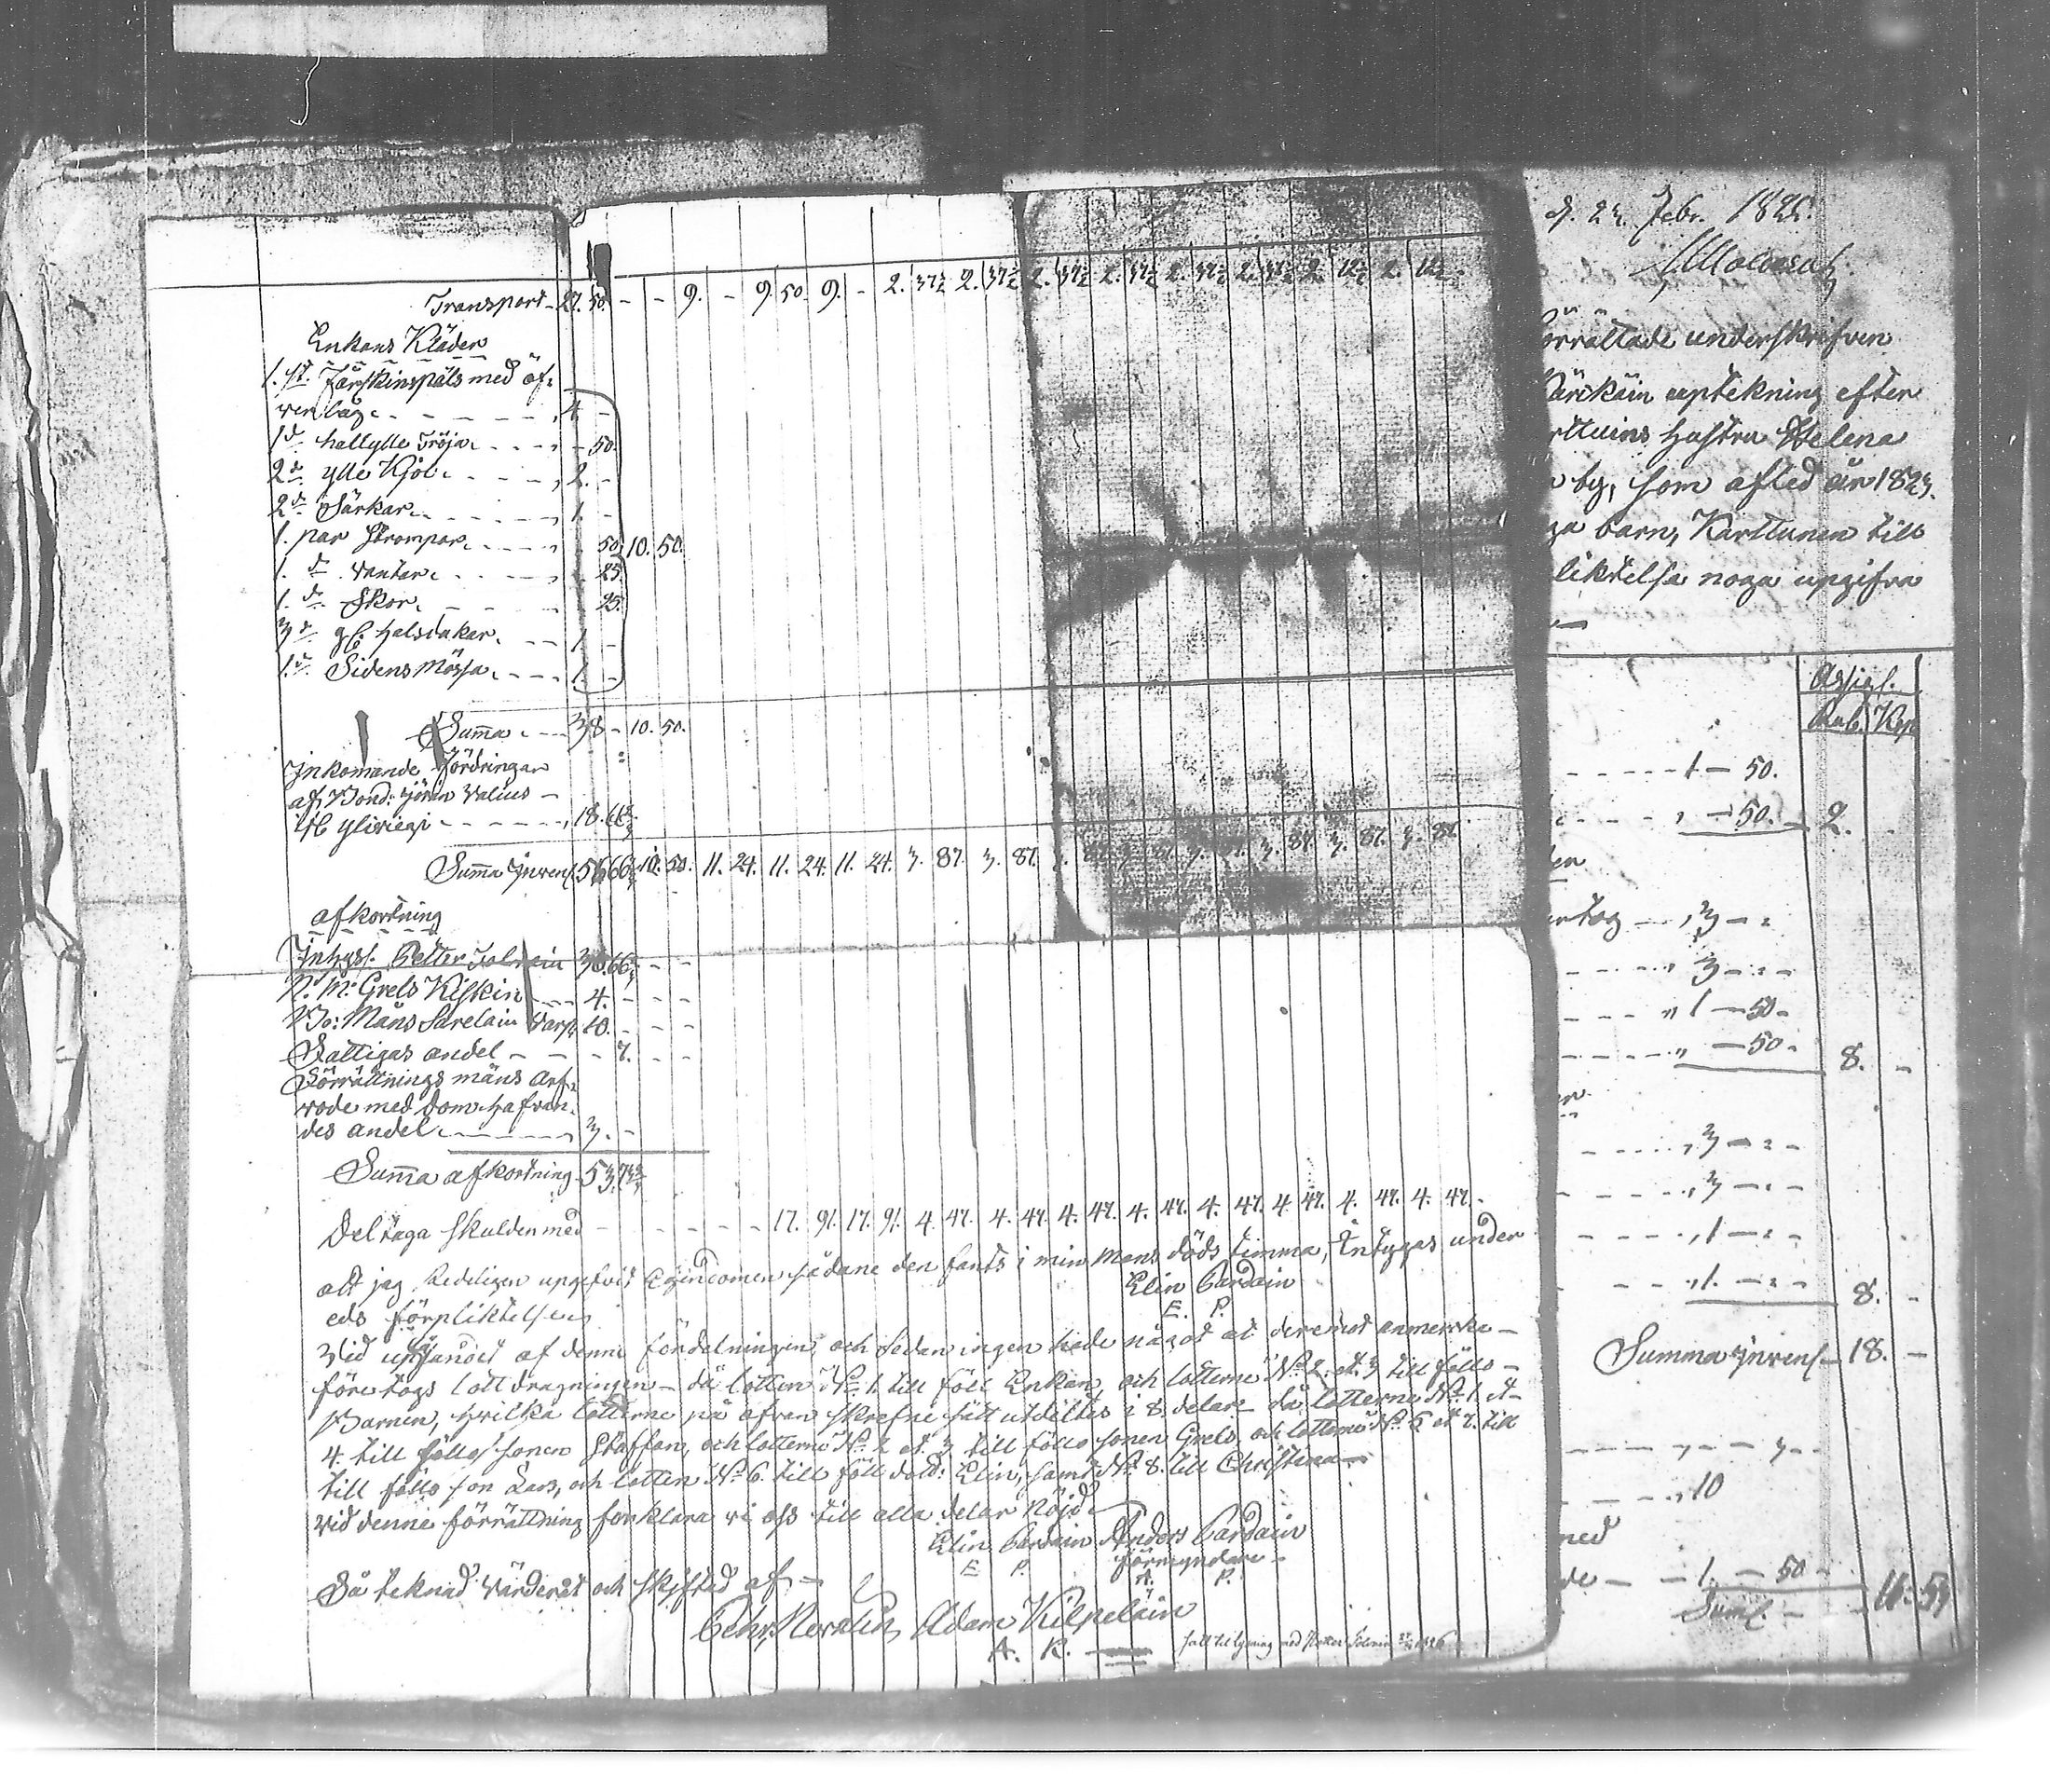 Transport - 27. 50. - - 9. - 9. 50. 9. - 2. 37½ 2. 37½ 2. 37½ 2. 37½ 2. 37½ 2. 37½ 2. 12½ 2. 12½
Enkans Kläder
1. st. Fårskinspäls med öf-
ver tåg - - - - 4. -
1 d. halfylle Tröja - - - - 50.
2 d. ylle Kjol - - - - 2. -
2 d. Särkar - - - - 1. -
1. par Strumpor - - - - 50. 10. 50.
1. d. vantar - - - - 25.
1. d. Skor - - - - 25.
3 d. gl. halsdukar - - 1. -
1. d. Sidens Mössa - - - 1. -
Summa - - - 38 - 10. 50.
Inkomande Fordringar
af Bond: Göran Valius -
ifr Yliviexi - - - - 18. 66⅔
Summa Invent. 56. 66⅔ 10. 50. 11. 24. 11. 24. 11. 24. 3. 87. 3. 87. 3. 87. 3. 87. 3. 87. 3. 87. 3. 87. 3. 87.
afkortning
Inhys. Petter 36. 66⅔ - -
N. M. Grels Kiskin - - - 4. - - -
Bo: Måns Sarelain 10. - - -
Fattigas andel - - - 7. - -
Förrättnings mäns arf-
vode med Domhafvan-
des andel - - - - 3. -
Summa afkortning 53. 73⅔
Deltaga Skulden med - - - - - 17. 91. 17. 91. 4. 47. 4. 47. 4. 47. 4. 47. 4. 47. 4. 47. 4. 47. 4. 47.
att jag Redeligen uppgifvit Egendomen sådane den fants i min Mans döds timma, Intygas under
eds förpliktelsen
Elin Pardain
E. P.
Vid af denne fördelningen, och sedan ingen hade något at deremot anmerka -
företogs lott dragningen - då lotten No 1. till föll Enkan, och lotterne No 2. et 3 till föllo -
Barnen, hvilka lotterne på ofvan skrefne sätt utdeltes i 8. delar - då lotterne No 1. et
4. till föllo sonen Staffan, och lotterne No 2 et 3 till föllo sonen Grels, och lotterne No 5 et 7. till
till föllo son Lars, och lotten No 6. till föll dott: Elin, samt No 8. till Christina -
vid denne förrättning förklara vi oss till alla delar Nöjd
Elin Pardain Anders Pardain
E. P. förmyndare -
A. P.
Så teknad värderat och skiftad af -
Adam Kilpeläin
A. K.
d. Febr.
örrättade underskrifven
uptekning efter
hustru Helena
by, som afled år 1823.
barn, Karttunen till
liktelse noga upgifva
Assigl.
Rub. Kop.
- - - - 1 - 50.
- - - - - 50. - 2. -
tog - - 3 - -
- - - - 3 - -
- - - - 1 - 50 -
- - - - - 50 - 8. -
- - - - 3 - -
- - - - 3 - -
- - - - 1 - -
- - - - 1. - - 8. -
Summa Invent. - 18. -
- - - 10
med
- - 1. - 50 -
Sum. - - 11. 53